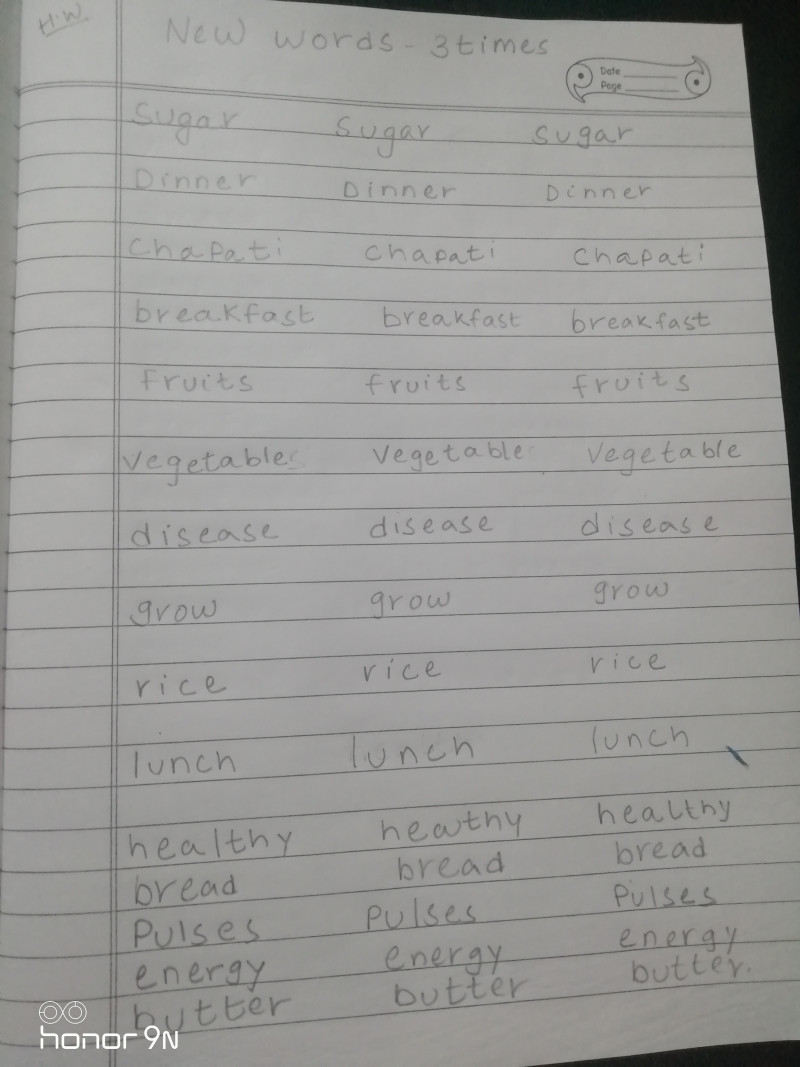 H.W
New words - 3 times
Date
Page
Sugar Sugar Sugar
Dinner Dinner Dinner
Chapati Chapati Chapati
breakfast breakfast breakfast
fruits fruits fruits
Vegetable Vegetable Vegetable
disease disease disease
grow grow grow
rice rice rice
lunch lunch lunch
healthy heathy healthy
bread bread bread
Pulses Pulses Pulses
energy energy energy
butter butter butter.
honor 9N